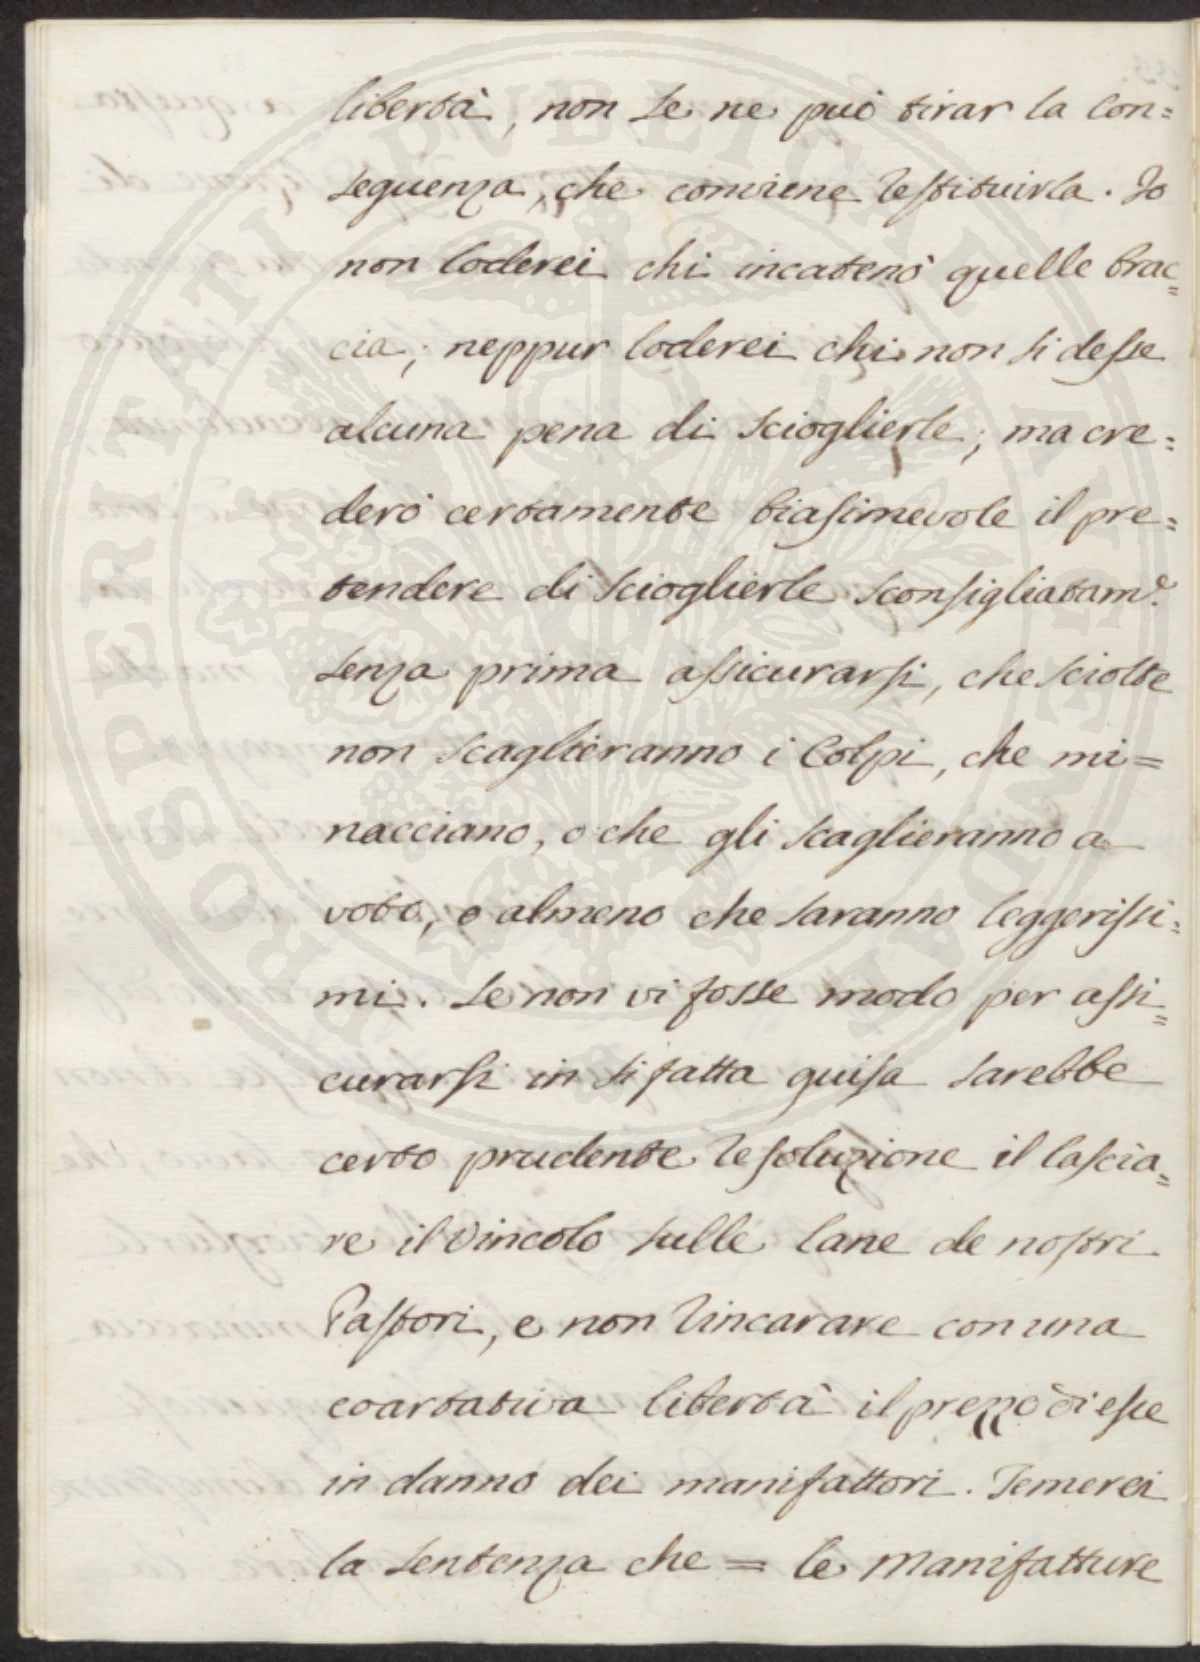 libertà, non se ne può tirar la Con=
seguenza, che conviene restituirla. Io
non loderei chi incatenò quelle brac=
cia; neppur loderei chi non si desse
alcuna pena di scioglierle; ma cre=
derò certamente biasimevole il pre=
tendere di scioglierle sconsigliatam.e
senza prima assicurarsi, che sciolte
non scaglieranno i Colpi, che mi=
nacciano, o che gli scaglieranno a
voto, o almeno che saranno leggerissi=
mi. Se non vi fosse modo per assi=
curarsi in si fatta guisa sarebbe
certo prudente resoluzione il lascia=
re il Vincolo sulle lane de nostri
Pastori, e non rincarare con una
coartativa libertà il prezzo di esse
in danno dei manifattori. Temerei
la sentenza che = le Manifatture
PROSPERITATI PVBLICAE AVGENDAE